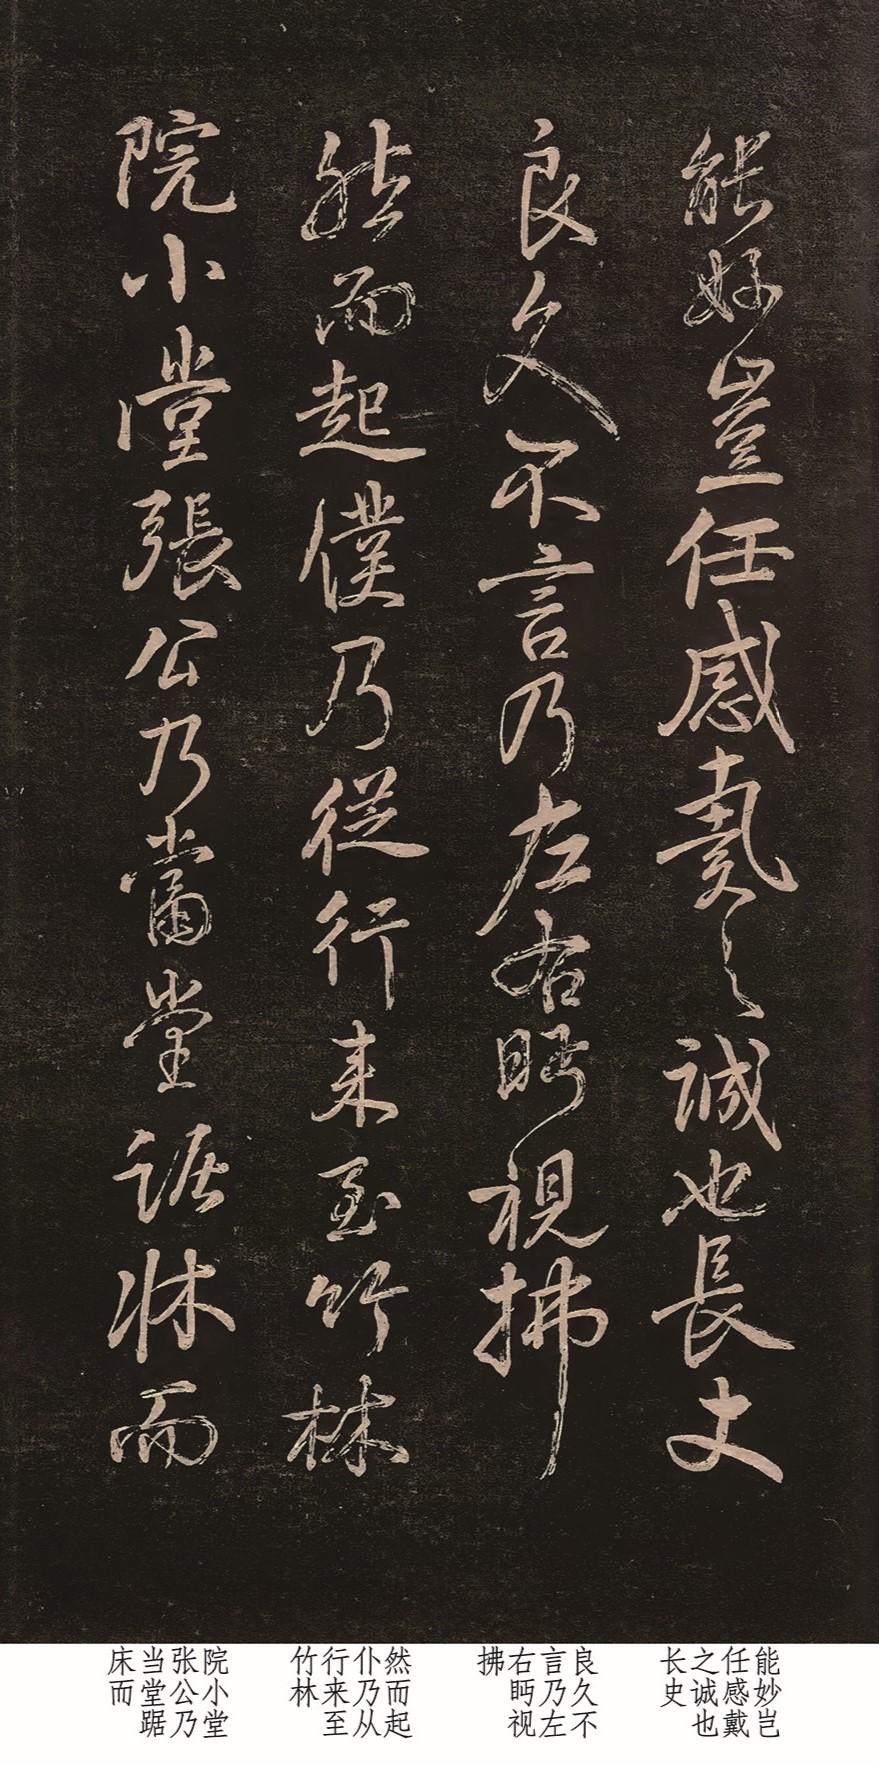 能妙豈任感戴之誠也長史
良久不言乃左右眄視拂
然而起僕乃從行來至竹林
院小堂張公乃當堂踞牀而
能妙岂
任感戴
之诚也
长史
良久不
言乃左
右眄视
拂
然而起
仆乃从
行来至
竹林
院小堂
张公乃
当堂踞
床而